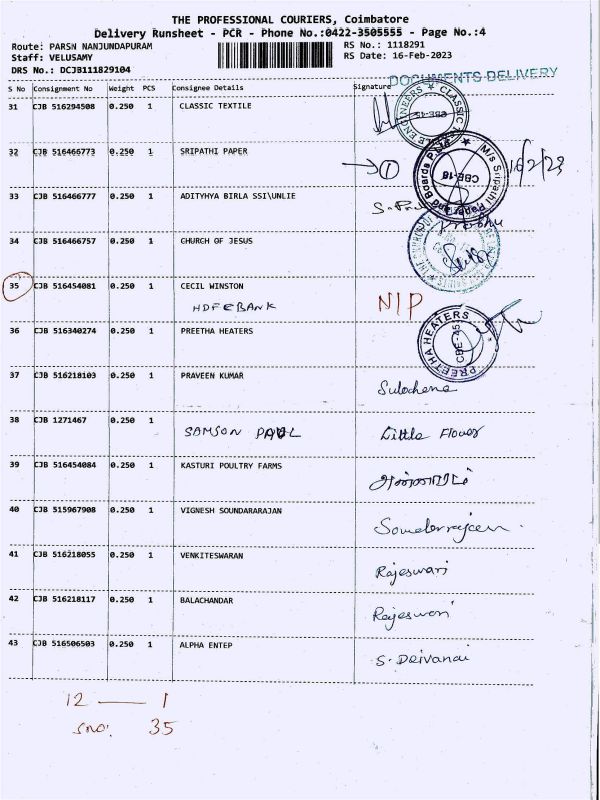 THE PROFESSIONAL COURIERS, Coimbatore
Delivery Runsheet - PCR - Phone No.:0422-3505555 - Page No.:4
Route: PARSN NANJUNDAPURAM
Staff: VELUSAMY
DRS No.: DCJB111829104
RS No.: 1118291
RS Date: 16-Feb-2023
DOCUMENTS DELIVERY
S No Consignment No Weight PCS Consignee Details Signature
31 CJB 516294508 0.250 1 CLASSIC TEXTILE
ENGINEERS ★ CLASSIC CBE-45
32 CJB 516466773 0.250 1 SRIPATHI PAPER → 1 16/2/23
M/s Sripathi Paper and Boards P Ltd ★ CBE-18
33 CJB 516466777 0.250 1 ADITYHYA BIRLA SSI\UNLIE
Prabhu
34 CJB 516466757 0.250 1 CHURCH OF JESUS
35 CJB 516454081 0.250 1 CECIL WINSTON N/P
HDFC BANK
36 CJB 516340274 0.250 1 PREETHA HEATERS
PREETHA HEATERS CBE-45
37 CJB 516218103 0.250 1 PRAVEEN KUMAR Sulochana
38 CJB 1271467 0.250 1 SAMSON PAUL Little Flower
39 CJB 516454084 0.250 1 KASTURI POULTRY FARMS
40 CJB 515967908 0.250 1 VIGNESH SOUNDARARAJAN Sounderrajan
41 CJB 516218055 0.250 1 VENKITESWARAN Rajeswari
42 CJB 516218117 0.250 1 BALACHANDAR Rajeswari
43 CJB 516506503 0.250 1 ALPHA ENTEP S. Deivanai
12 — 1
Sno: 35